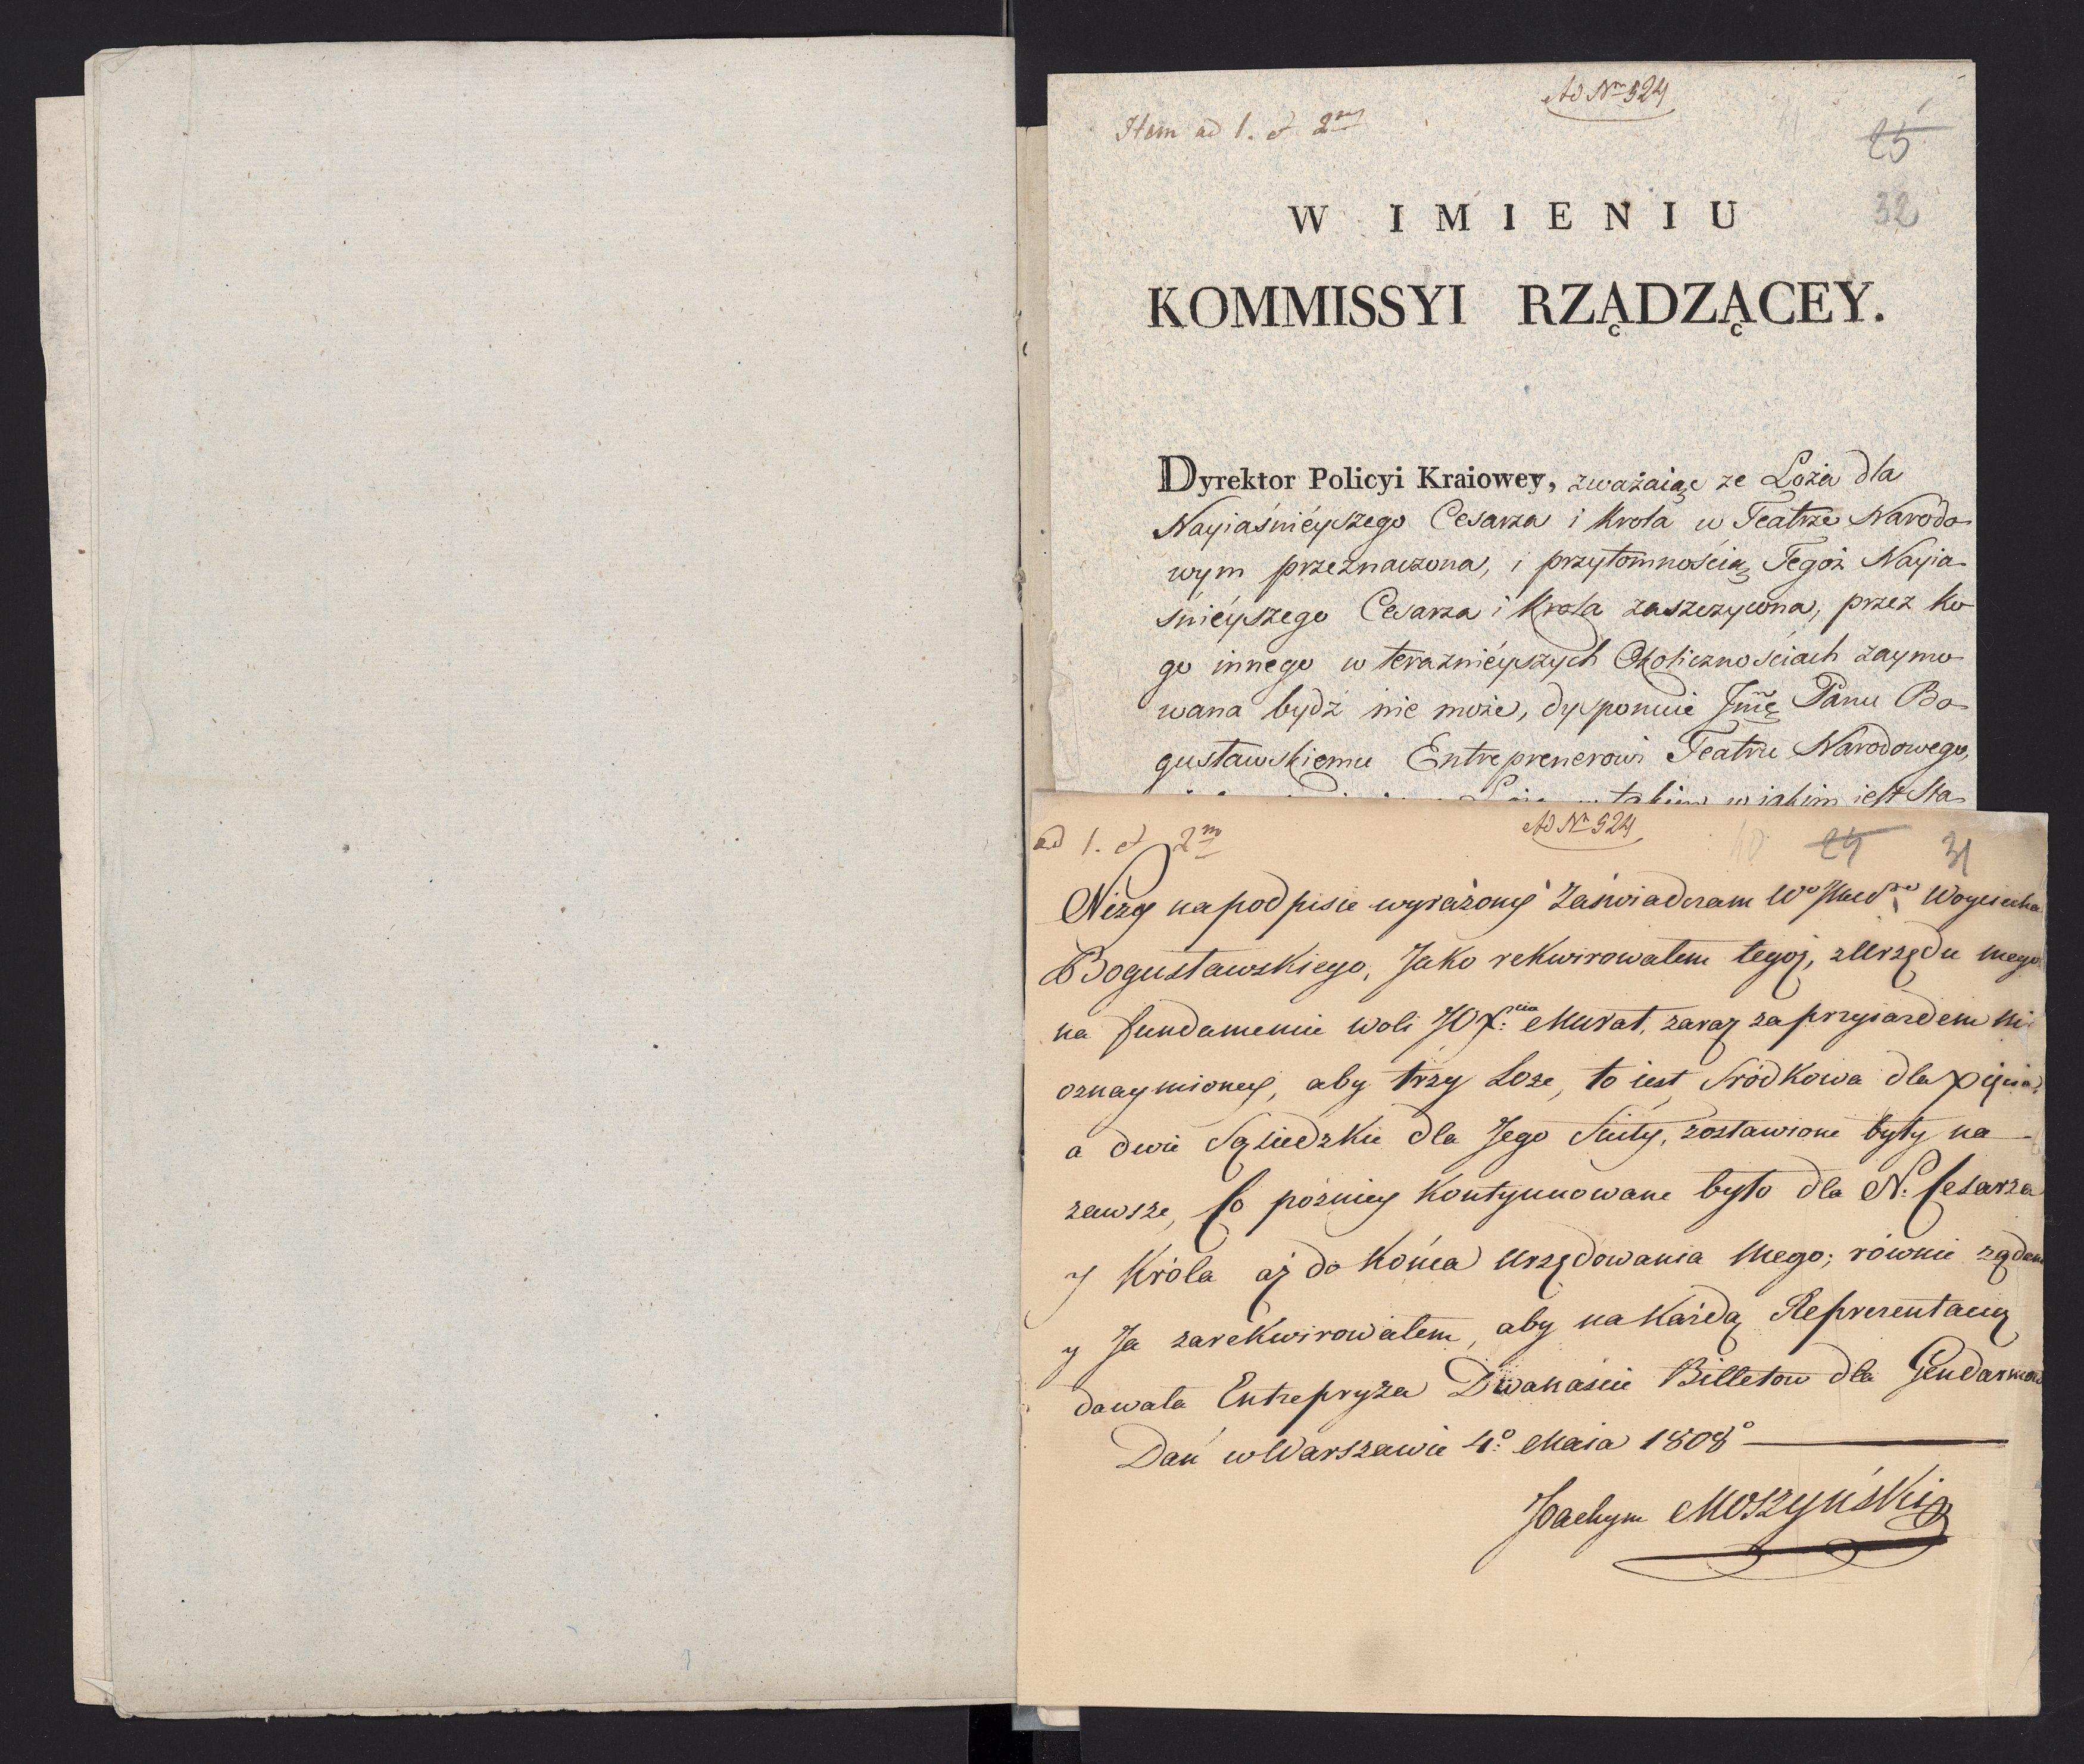 Ad Nm 524
Item ad 1. et 2m
25
32
W IMIENIU
KOMMISSYI RZĄDZĄCEY.
Dyrektor Policyi Kraiowey, zważaiąc ze Loża dla
Nayiaśnieyszego Cesarza i Krola w Teatrze Narodo-
wym przeznaczona, i przytomnością Tegoż Nayia-
śnieyszego Cesarza i Krola zaszczycona, przez ko-
go innego w teraznieyszych Okolicznościach zaymo-
wana bydź nie może, dysponuie Jmć Panu Bo-
gusławskiemu Entreprenerowi Teatru Narodowego,
takim w jakim iest sta-
ad 1. et 2m
Ad Nm 524
40 24 31
Niżey na podpisie wyrażony zaświadczam Wo Woyciecha
Bogusławskiego, Jako rekwirowałem tegoż, z Urzędu mego
na fundamencie woli JOX:cia Murat, zaraz za przyiazdem mi
oznaymioney, aby trzy Loże, to iest, Śródkowa dla Xięcia,
a dwie Sąsiedzkie dla Jego Suity, zostawione były na
zawsze, Co pózniey kontynuowane było dla N: Cesarza
y Króla aż do Końca Urzędowania mego; równie żądałem
y Ja zarekwirowałem, aby na każdą Reprezentacią
dawała Entrepryza Dwanaście Billetow dla Gendarmow
Dań w Warszawie 4o Maia 1808o
Joachym Moszyński